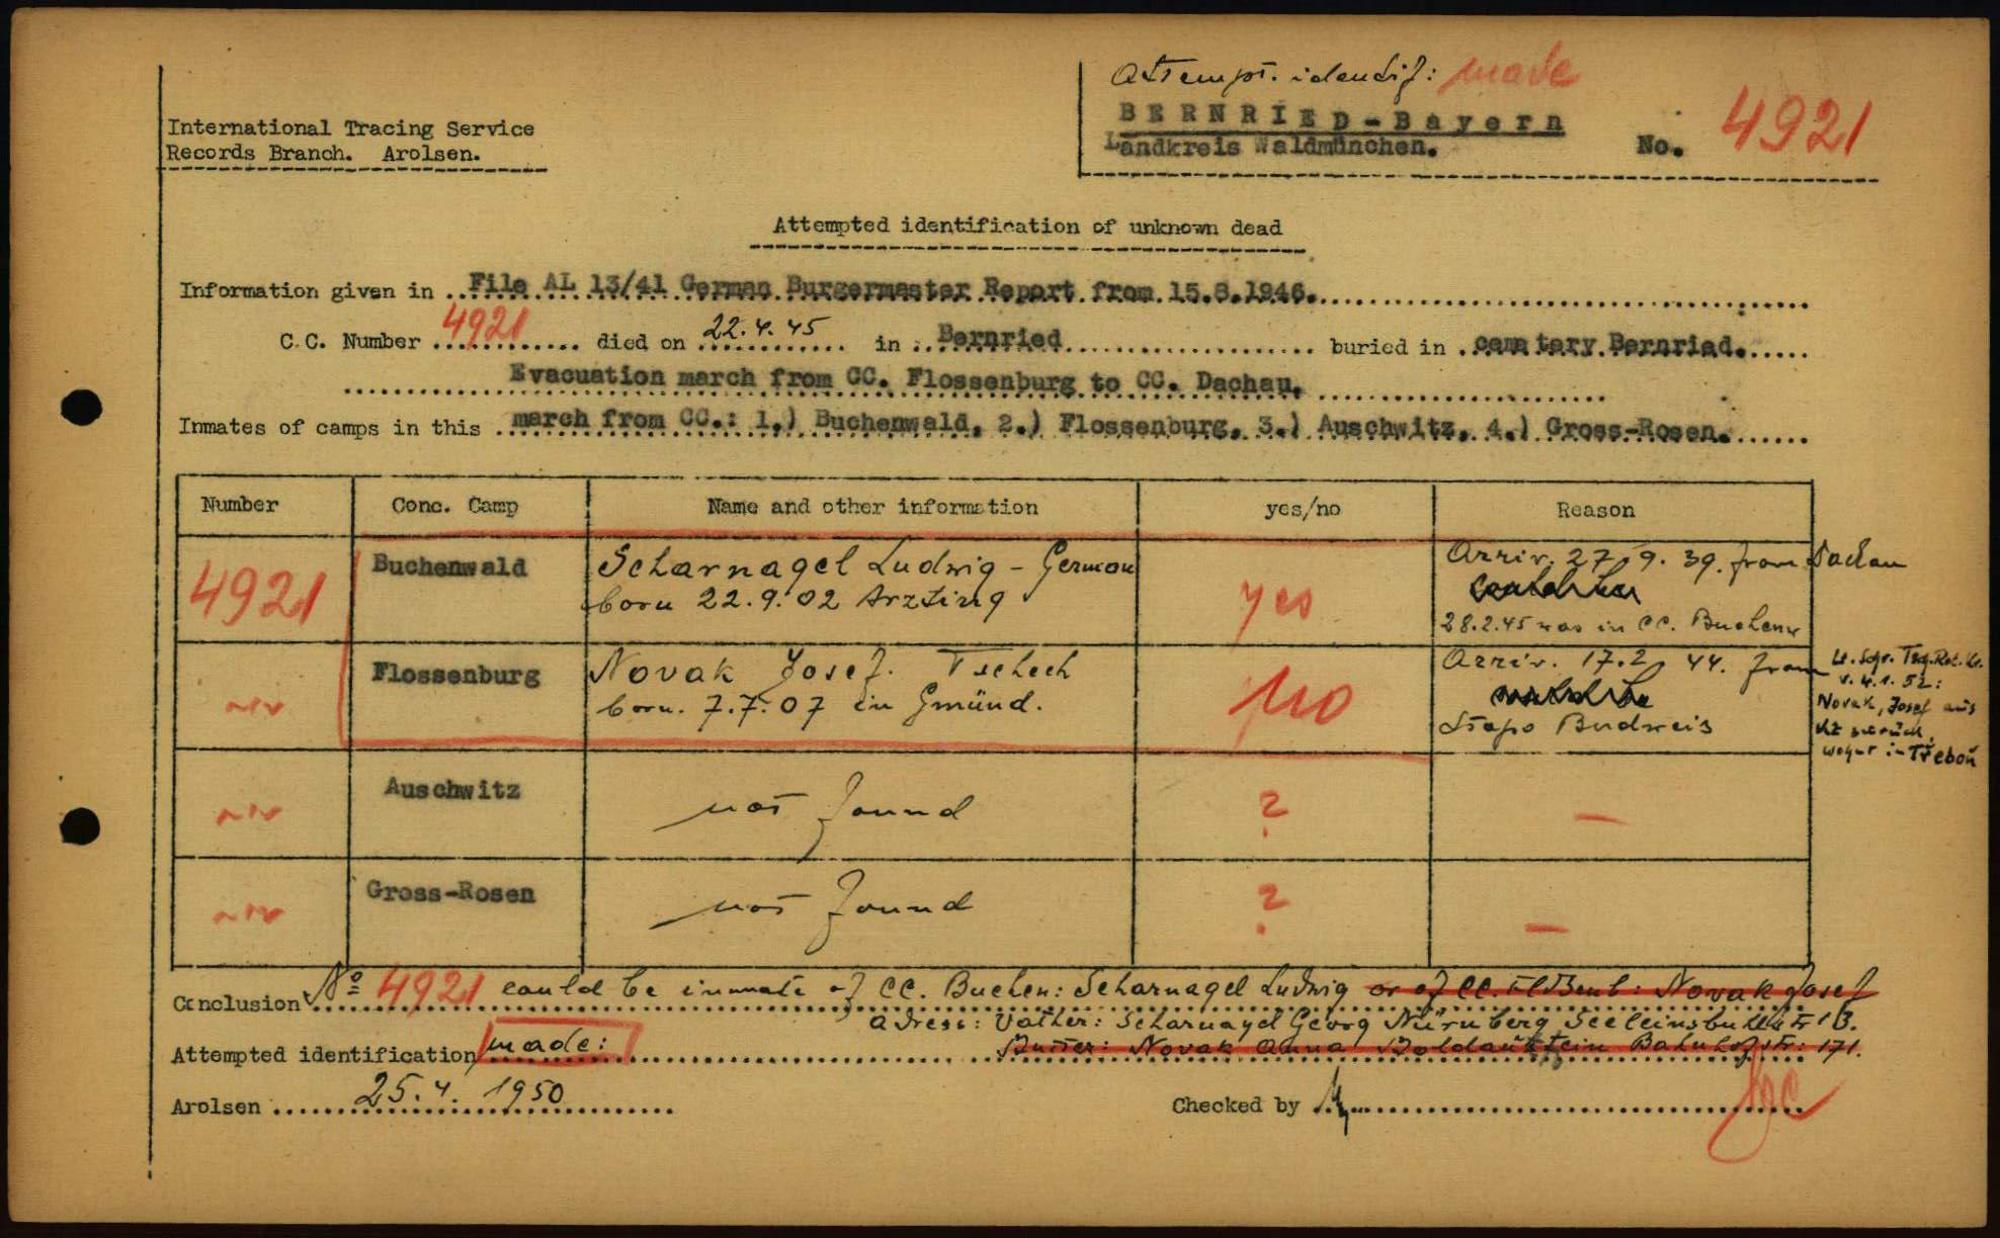 Attempt. identif: made
BERNRIED-Bayern
Landkreis Waldmünchen. No. 4921
International Tracing Service
Records Branch. Arolsen.
Attempted identification of unknown dead
Information given in File AL 13/41 German Burgermaster Report from 15.8.1946.
C.C. Number 4921 died on 22.4.45 in Bernried buried in cematary Bernried.
Evacuation march from CC. Flossenburg to CC. Dachau.
Inmates of camps in this march from CC.: 1.) Buchenwald, 2.) Flossenburg, 3.) Auschwitz, 4.) Gross-Rosen.
Number Conc. Camp Name and other information yes/no Reason
4921 Buchenwald Scharnagel Ludwig - German yes Arriv. 27.9.39. from Dachau
born 22.9.02 Arzting
28.2.45 was in CC. Buchenw
Flossenburg Novak Josef. Tschech No Arriv. 17.2.44. from
born. 7.7.07 in Gmünd.
Stapo Budweis
v. 4.1.52:
Novak, Josef aus
KZ zurück,
wohnt in Třeboň
Auschwitz not found ? —
Gross-Rosen not found ? —
Conclusion No 4921 could be inmate of CC. Buchen: Scharnagel Ludwig or of CC. Flossenb: Novak Josef
Adress: Vather: Scharnagel Georg Nürnberg 13.
Attempted identification made: Novak Anna Bahnhofstr: 171.
Arolsen 25.4.1950 Checked by